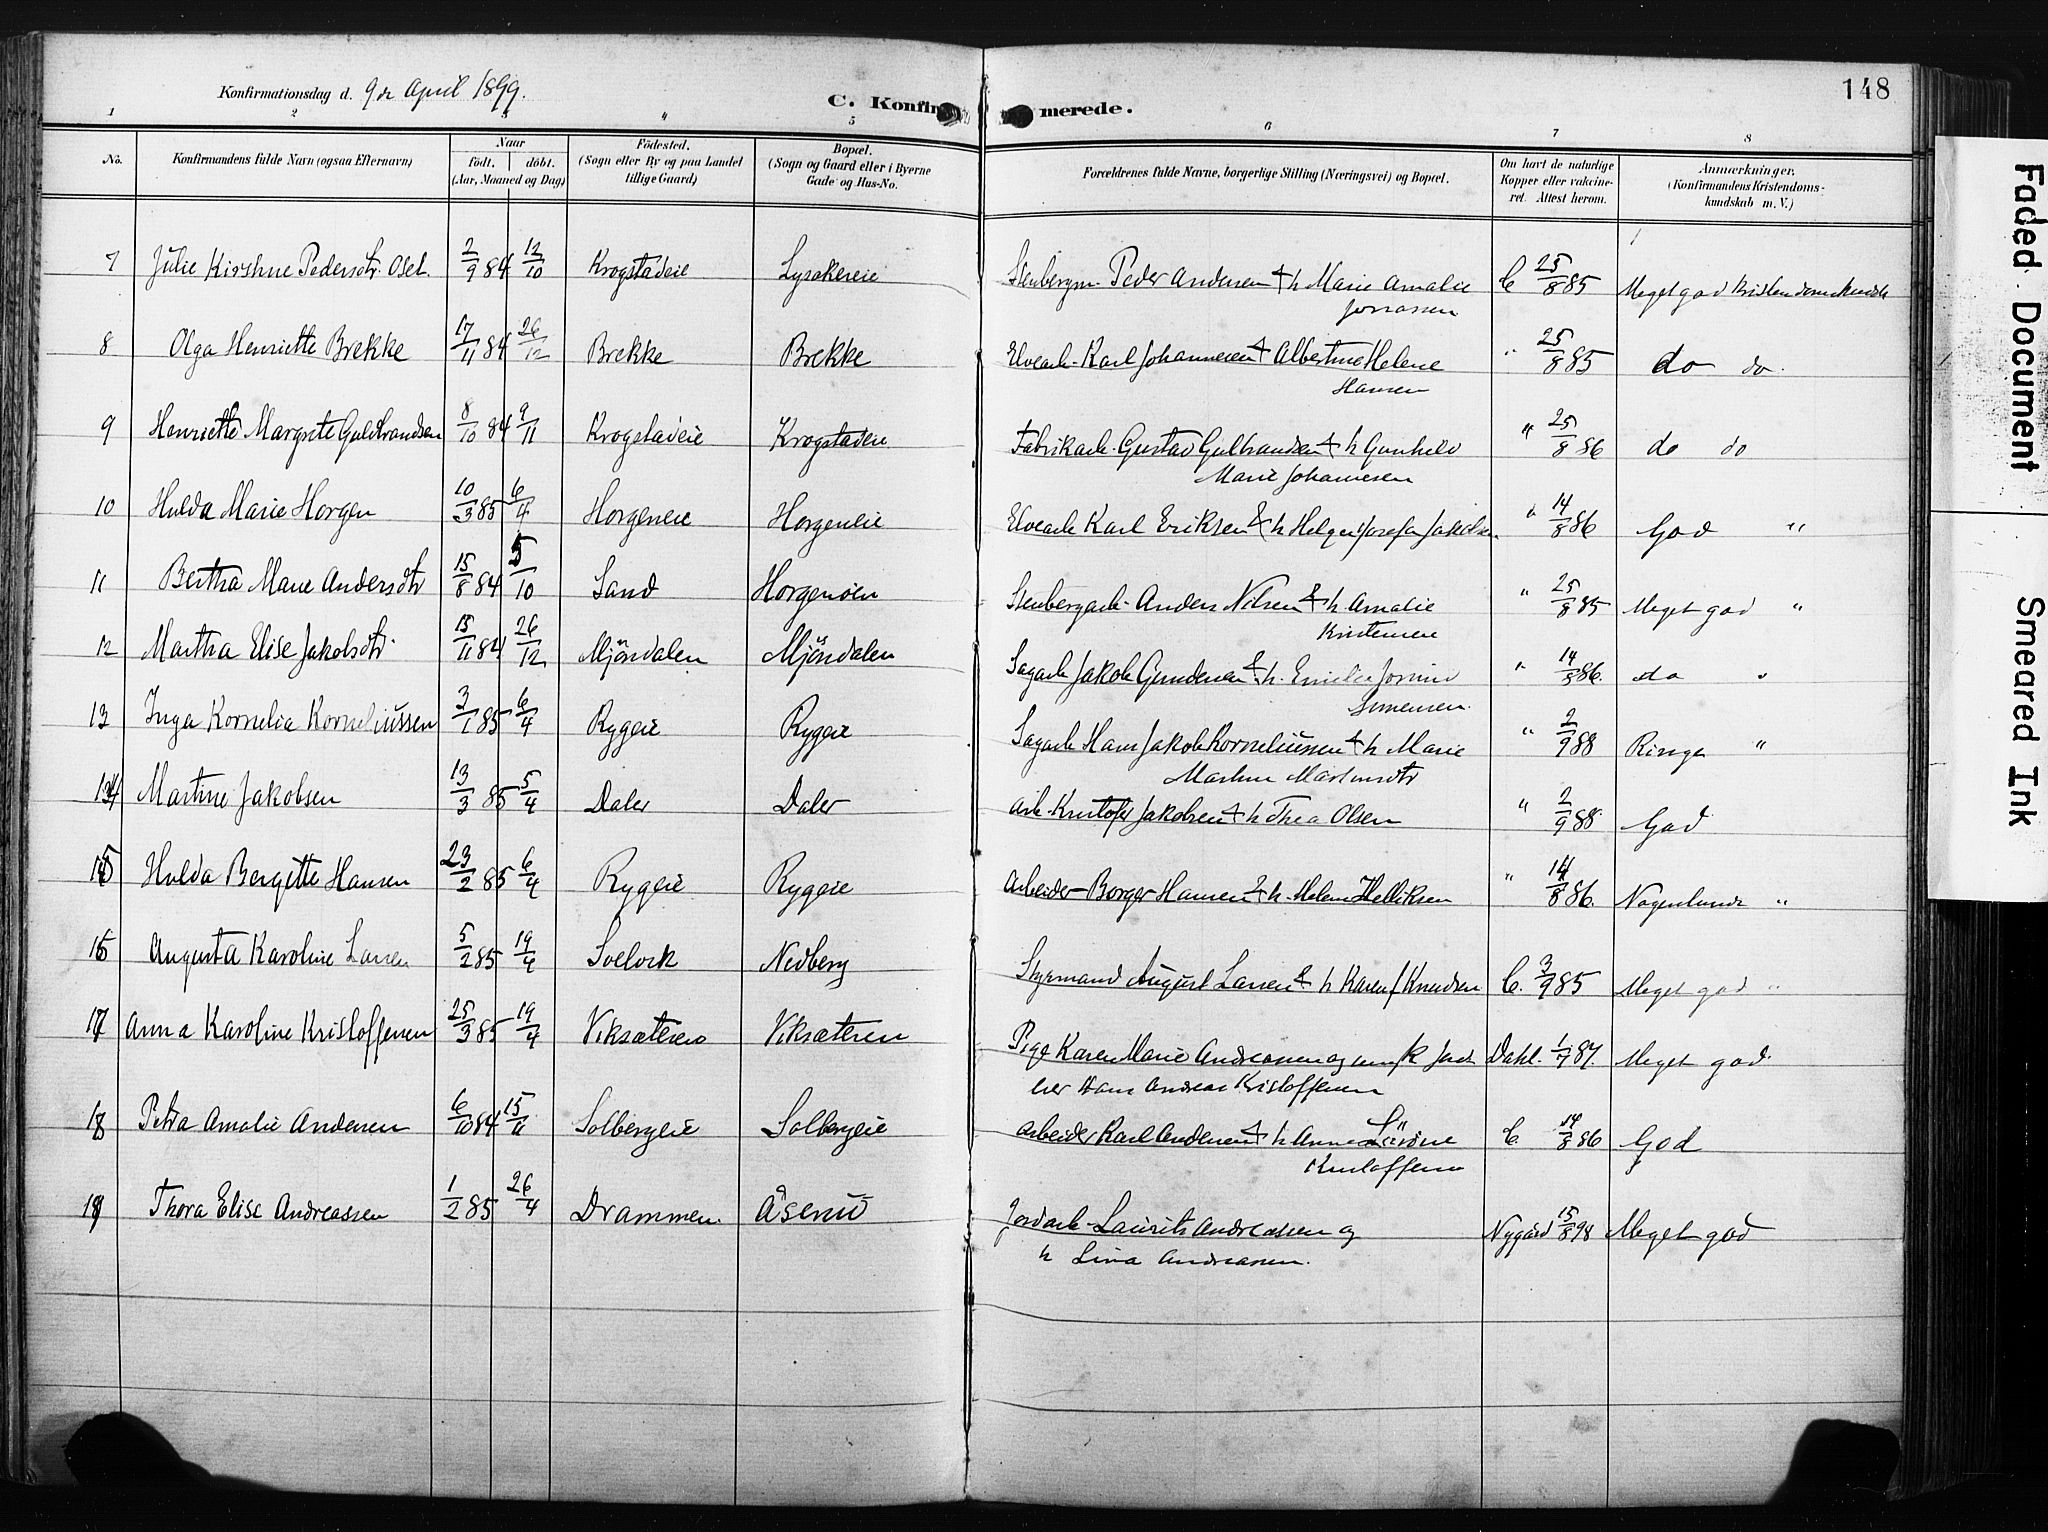 148
Konfirmationsdag d. 9de April 1899.
C. Konfirmerede.
1 2 3 4 5 6 7 8
No. Konfirmandens fulde Navn (ogsaa Efternavn) Naar født. døbt. (Aar, Maaned og Dag) Fødested. (Sogn eller By og paa Landet tillige Gaard) Bopæl. (Sogn og Gaard eller i Byerne Gade og Hus-No. Forældrenes fulde Navne, borgerlige Stilling (Næringsvei) og Bopæl. Om havt de naturlige Kopper eller vakcineret. Attest herom. Anmærkninger. (Konfirmandens Kristendomskundskab m. V.)
7 Julie Kirstine Pedersdtr. Oset. 2/9 84 12/10 Krogstadeie Lysakereie Stenbergm. Peder Andersen & h Marie Amalie C 25/8 85 Meget god
Jonassen
8 Olga Henriette Brekke 17/11 84 26/12 Brekke Brekke Elvearb. Karl Johannesen & Albertine Helene " 25/8 85 do do.
Hansen
9 Henriette Margrete Gulbrandsen 8/10 84 9/11 Krogstadeie Krogstadeie Fabrikarb. Gustav Gulbrandsen & h Gunhild " 25/8 86 do do
Marie Johannesen
10 Hulda Marie Horgen 10/3 85 6/4 Horgeneie Horgeneie Elvearb Karl Eriksen & h Helga Josefa Jakobsen " 14/8 86 God "
11 Bertha Marie Andersdtr 15/8 84 5/10 Sand Horgenøen Stenbergarb. Anders Nilsen & h. Amalie " 25/8 85 Meget god "
Kristensen
12 Martha Elise Jakobsdtr. 15/11 84 26/12 Mjöndalen Mjöndalen Sagarb Jakob Gundersen & h. Emilie " 14/8 86. do "
Simensen
13 Inga Kornelia Korneliussen 3/1 85 6/4 Rygeie Rygeie Sagarb Hans Jakob Korneliussen & h Marie " 2/9 88 Ringe "
Martine Martinsdtr
14 Martine Jakobsen 13/3 85 5/4 Daler Daler Arb. Kristofer Jakobsen & h Thea Olsen " 2/9 88 God
15 Hulda Bergitte Hansen 23/2 85 6/4 Rygeie Rygeie Arbeider Borger Hansen & h. Helene Helliksen " 14/8 86. Nogenlunde "
16 Augusta Karoline Larsen 5/2 85 19/4 Svelvik Nedberg Styrmand August Larsen & h Karen Knudsen C. 3/9 85 Meget god "
17 Anna Karoline Kristoffersen 25/3 85 19/4 Viksæteren Viksæteren Pige Karen Marie Andreassen og Dahl. 1/7 87. Meget god.
Hans Andreas Kristoffersen
18 Petra Amalie Andersen 6/10 84 15/11 Solbergeie Solbergeie Arbeider Karl Andersen & h Anne C. 14/8 86 God
Kristoffersen
19 Thora Elise Andreassen 1/2 85 26/4 Drammen. Åserud Jordarb. Laurits Andreassen og Nygård 15/8 98 Meget god
h Lina Andreassen.
Faded Document
Smeared Ink